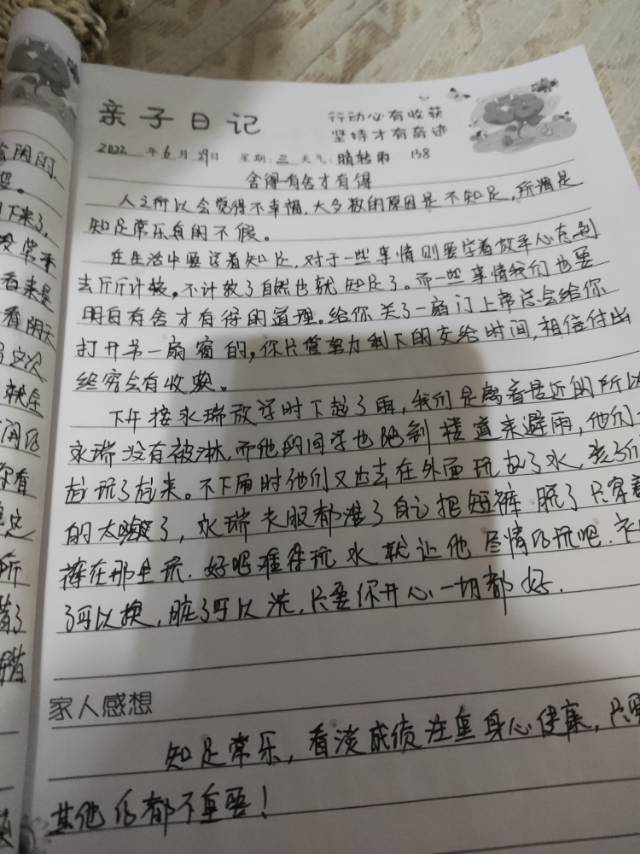 亲子日记
行动心有收获
坚持才有奇迹
2022年6月29日 星期:三 天气:晴转雨 138
舍得有舍才有得
人之所以会觉得不幸福,大多数的原因是不知足,所谓是
知足常乐真的不假。
在生活中要学着知足,对于一些事情则要学着放平心态,别
去斤斤计较,不计较了自然也就知足了。而一些事情我们也要
明白有舍才有得的道理。给你关了一扇门上帝总会给你
打开另一扇窗的,你只管努力剩下的交给时间,相信付出
终究会有收获。
下午接永瑞放学时下起了雨,我们是离着最近的所以
永瑞没有被淋,而他的同学也跑到楼道来避雨,他们一
起玩了起来。不下雨时他们又出去在外面玩起了水,
的太嗨了,永瑞衣服都湿了自己把短裤脱了只穿着
裤在那里玩,好吧难得玩水就让他尽情的玩吧,
了可以换,脏了可以洗,只要你开心一切都好.
家人感想
知足常乐,看淡成绩注重身心健康,只要
其他的都不重要!